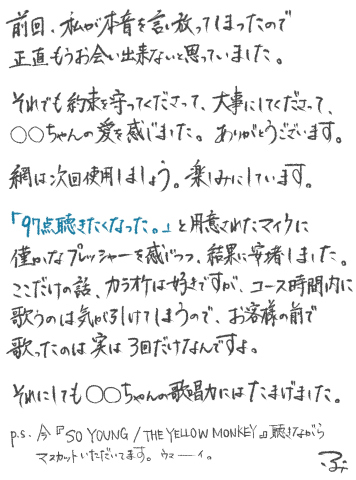 前回、私が本音を言い放ってしまったので
正直もうお会い出来ないと思っていました。
それでも約束を守ってくださって、大事にしてくださって、
○○ちゃんの愛を感じました。ありがとうございます。
網は次回使用しましょう。楽しみにしています。
「97点聴きたくなった。」と用意されたマイクに
僅かなプレッシャーを感じつつ、結果に安堵しました。
ここだけの話、カラオケは好きですが、コース時間内に
歌うのは気が引けてしまうので、お客様の前で
歌ったのは実は3回だけなんですよ。
それにしても○○ちゃんの歌唱力にはたまげました。
p.s. 今『SO YOUNG / THE YELLOW MONKEY』聴きながら
マスカットいただいてます。ウマーイ。